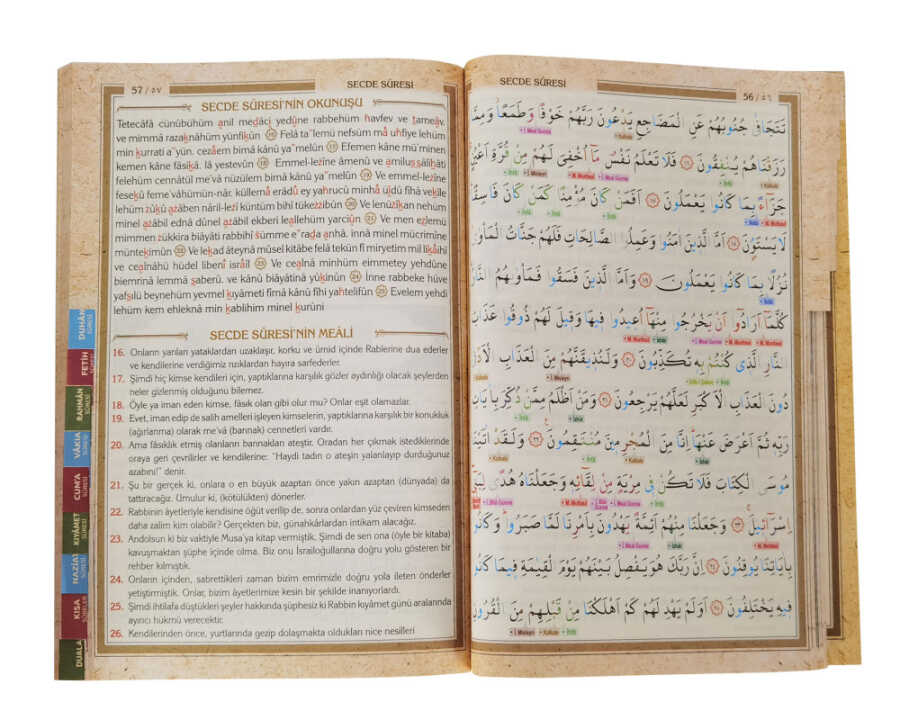 57 / ٥٧
SECDE SÛRESİ
SECDE SÛRESİ'NİN OKUNUŞU
Tetecâfâ cünûbühüm anil medâci yedûne rabbehüm havfev ve tameav.
ve mimmâ razaknâhüm yünfikûn 16 Felâ ta'lemü nefsüm mâ uhfiye lehüm
min kurrati a'yün. cezâem bimâ kânû ya'melûn 17 Efemen kâne mü'minen
kemen kâne fâsikâ. lâ yestevûn 18 Emmel-lezîne âmenû ve amilus sâlihâti
felehüm cennâtül me'vâ nüzülem bimâ kânû ya'melûn 19 Ve emmel-lezîne
fesekû feme'vâhümün-nâr. küllemâ erâdû ey yahrucû minhâ uîdû fîhâ ve kîle
lehüm zûkû azâben nâril-lezî küntüm bihî tükezzibûn 20 Ve lenüzîkan nehüm
minel azâbil ednâ dûnel azâbil ekberi leallehüm yarciûn 21 Ve men ezlemü
mimmen zükkira biâyâti rabbihî sümme e'rada anhâ. innâ minel mücrimîne
müntekimûn 22 Ve lekad âteynâ mûsel kitâbe felâ tekün fî miryetim mil likâihî
ve cealnâhü hüdel libenî isrâîl 23 Ve cealnâ minhüm eimmetey yehdûne
biemrinâ lemmâ saberû. ve kânû biâyâtinâ yûkınûn 24 İnne rabbeke hüve
yafsılü beynehüm yevmel kıyâmeti fîmâ kânû fîhi yahtelifûn 25 Evelem yehdi
lehüm kem ehleknâ min kablihim minel kurûni
SECDE SÛRESİ'NİN MEÂLİ
16. Onların yanları yataklardan uzaklaşır, korku ve ümid içinde Rablerine dua ederler
ve kendilerine verdiğimiz rızıklardan hayıra sarfederler.
17. Şimdi hiç kimse kendileri için, yaptıklarına karşılık gözler aydınlığı olacak şeylerden
neler gizlenmiş olduğunu bilemez.
18. Öyle ya iman eden kimse, fâsık olan gibi olur mu? Onlar eşit olamazlar.
19. Evet, iman edip de salih amelleri işleyen kimselerin, yaptıklarına karşılık bir konukluk
(ağırlanma) olarak me'vâ (barınak) cennetleri vardır.
20. Ama fâsıklık etmiş olanların barınakları ateştir. Oradan her çıkmak istediklerinde
oraya geri çevrilirler ve kendilerine: "Haydi tadın o ateşin yalanlayıp durduğunuz
azabını!" denir.
21. Şu bir gerçek ki, onlara o en büyük azaptan önce yakın azaptan (dünyada) da
tattıracağız. Umulur ki, (kötülükten) dönerler.
22. Rabbinin âyetleriyle kendisine öğüt verilip de, sonra onlardan yüz çeviren kimseden
daha zalim kim olabilir? Gerçekten biz, günahkârlardan intikam alacağız.
23. Andolsun ki biz vaktiyle Musa'ya kitap vermiştik. Şimdi de sen ona (öyle bir kitaba)
kavuşmaktan şüphe içinde olma. Biz onu İsrailoğullarına doğru yolu gösteren bir
rehber kılmıştık.
24. Onların içinden, sabrettikleri zaman bizim emrimizle doğru yola ileten önderler
yetiştirmiştik. Onlar, bizim âyetlerimize kesin bir şekilde inanıyorlardı.
25. Şimdi ihtilafa düştükleri şeyler hakkında şüphesiz ki Rabbin kıyâmet günü aralarında
ayırıcı hükmü verecektir.
26. Kendilerinden önce, yurtlarında gezip dolaşmakta oldukları nice nesilleri
DUHÂN SÛRESİ
FETİH
RAHMÂN SÛRESİ
VÂKIA SÛRESİ
CUM'A SÛRESİ
KIYÂMET SÛRESİ
NAZİAT SÛRESİ
KISA SÛRELER
DUALA
SECDE SÛRESİ
56 / ٥٦
تَتَجَافٰى جُنُوبُهُمْ عَنِ الْمَضَاجِعِ يَدْعُونَ رَبَّهُمْ خَوْفًا وَطَمَعًا وَمِمَّا
رَزَقْنَاهُمْ يُنْفِقُونَ ﴿١٦﴾ فَلَا تَعْلَمُ نَفْسٌ مَٓا اُخْفِيَ لَهُمْ مِنْ قُرَّةِ اَعْيُنٍ
جَزَٓاءً بِمَا كَانُوا يَعْمَلُونَ ﴿١٧﴾ اَفَمَنْ كَانَ مُؤْمِنًا كَمَنْ كَانَ فَاسِقًا
لَا يَسْتَوُ۫نَ ﴿١٨﴾ اَمَّا الَّذ۪ينَ اٰمَنُوا وَعَمِلُوا الصَّالِحَاتِ فَلَهُمْ جَنَّاتُ الْمَأْوٰى
نُزُلًا بِمَا كَانُوا يَعْمَلُونَ ﴿١٩﴾ وَاَمَّا الَّذ۪ينَ فَسَقُوا فَمَأْوٰيهُمُ النَّارُ
كُلَّمَٓا اَرَادُٓوا اَنْ يَخْرُجُوا مِنْهَٓا اُع۪يدُوا ف۪يهَا وَق۪يلَ لَهُمْ ذُوقُوا عَذَابَ
النَّارِ الَّذ۪ي كُنْتُمْ بِه۪ تُكَذِّبُونَ ﴿٢٠﴾ وَلَنُذ۪يقَنَّهُمْ مِنَ الْعَذَابِ الْاَدْنٰى
دُونَ الْعَذَابِ الْاَكْبَرِ لَعَلَّهُمْ يَرْجِعُونَ ﴿٢١﴾ وَمَنْ اَظْلَمُ مِمَّنْ ذُكِّرَ بِاٰيَاتِ
رَبِّه۪ ثُمَّ اَعْرَضَ عَنْهَا اِنَّا مِنَ الْمُجْرِم۪ينَ مُنْتَقِمُونَ ﴿٢٢﴾ وَلَقَدْ اٰتَيْنَا
مُوسَى الْكِتَابَ فَلَا تَكُنْ ف۪ي مِرْيَةٍ مِنْ لِقَٓائِه۪ وَجَعَلْنَاهُ هُدًى لِبَن۪ٓي
اِسْرَٓائ۪لَ ﴿٢٣﴾ وَجَعَلْنَا مِنْهُمْ اَئِمَّةً يَهْدُونَ بِاَمْرِنَا لَمَّا صَبَرُوا وَكَانُوا
بِاٰيَاتِنَا يُوقِنُونَ ﴿٢٤﴾ اِنَّ رَبَّكَ هُوَ يَفْصِلُ بَيْنَهُمْ يَوْمَ الْقِيٰمَةِ ف۪يمَا كَانُوا
ف۪يهِ يَخْتَلِفُونَ ﴿٢٥﴾ اَوَلَمْ يَهْدِ لَهُمْ كَمْ اَهْلَكْنَا مِنْ قَبْلِهِمْ مِنَ الْقُرُونِ